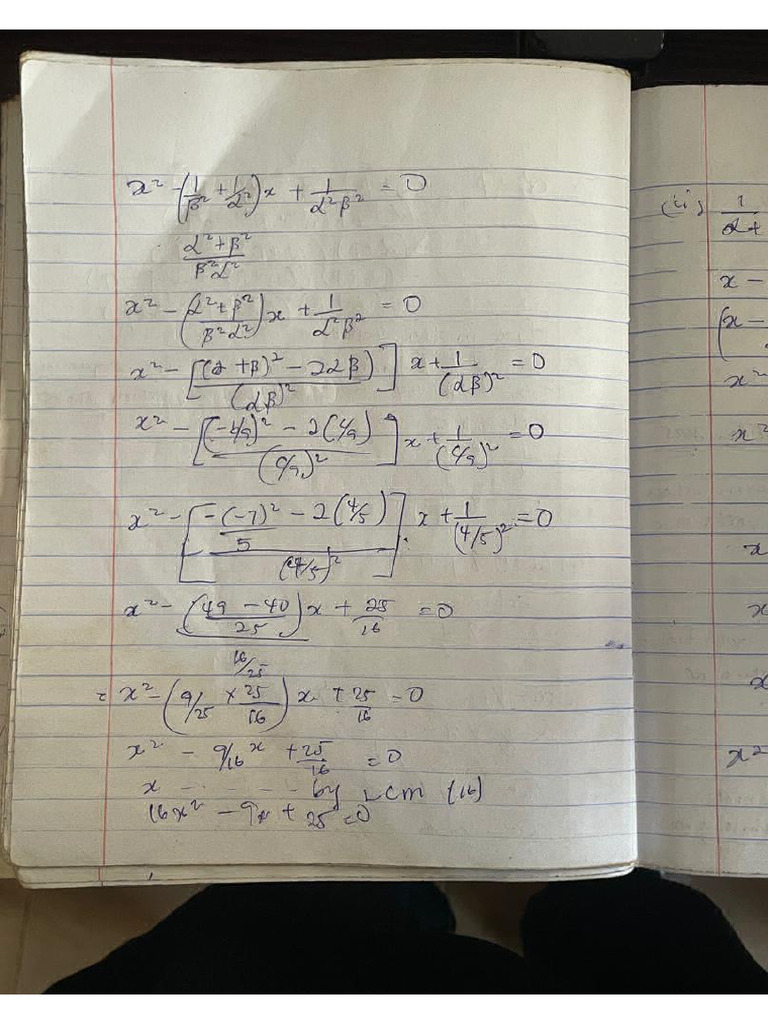 x² - (1/β² + 1/α²)x + 1/α²β² = 0
α² + β² / β²α²
x² - (α² + β² / β²α²)x + 1/α²β² = 0
x² - [(α + β)² - 2αβ) / (αβ)²] x + 1/(αβ)² = 0
x² - [(-b/a)² - 2(c/a) / (c/a)²] x + 1/(c/a)² = 0
x² - [-(-7)²/5 - 2(4/5) / (4/5)²] x + 1/(4/5)² = 0
x² - (49 - 40 / 25 / 16/25)x + 25/16 = 0
= x² - (9/25 × 25/16) x + 25/16 = 0
x² - 9/16 x + 25/16 = 0
x - - - - - by Lcm (16)
16x² - 9x + 25 = 0
(ii) 1/α+
x -
(x -
x²
x²
x
x
x
x²